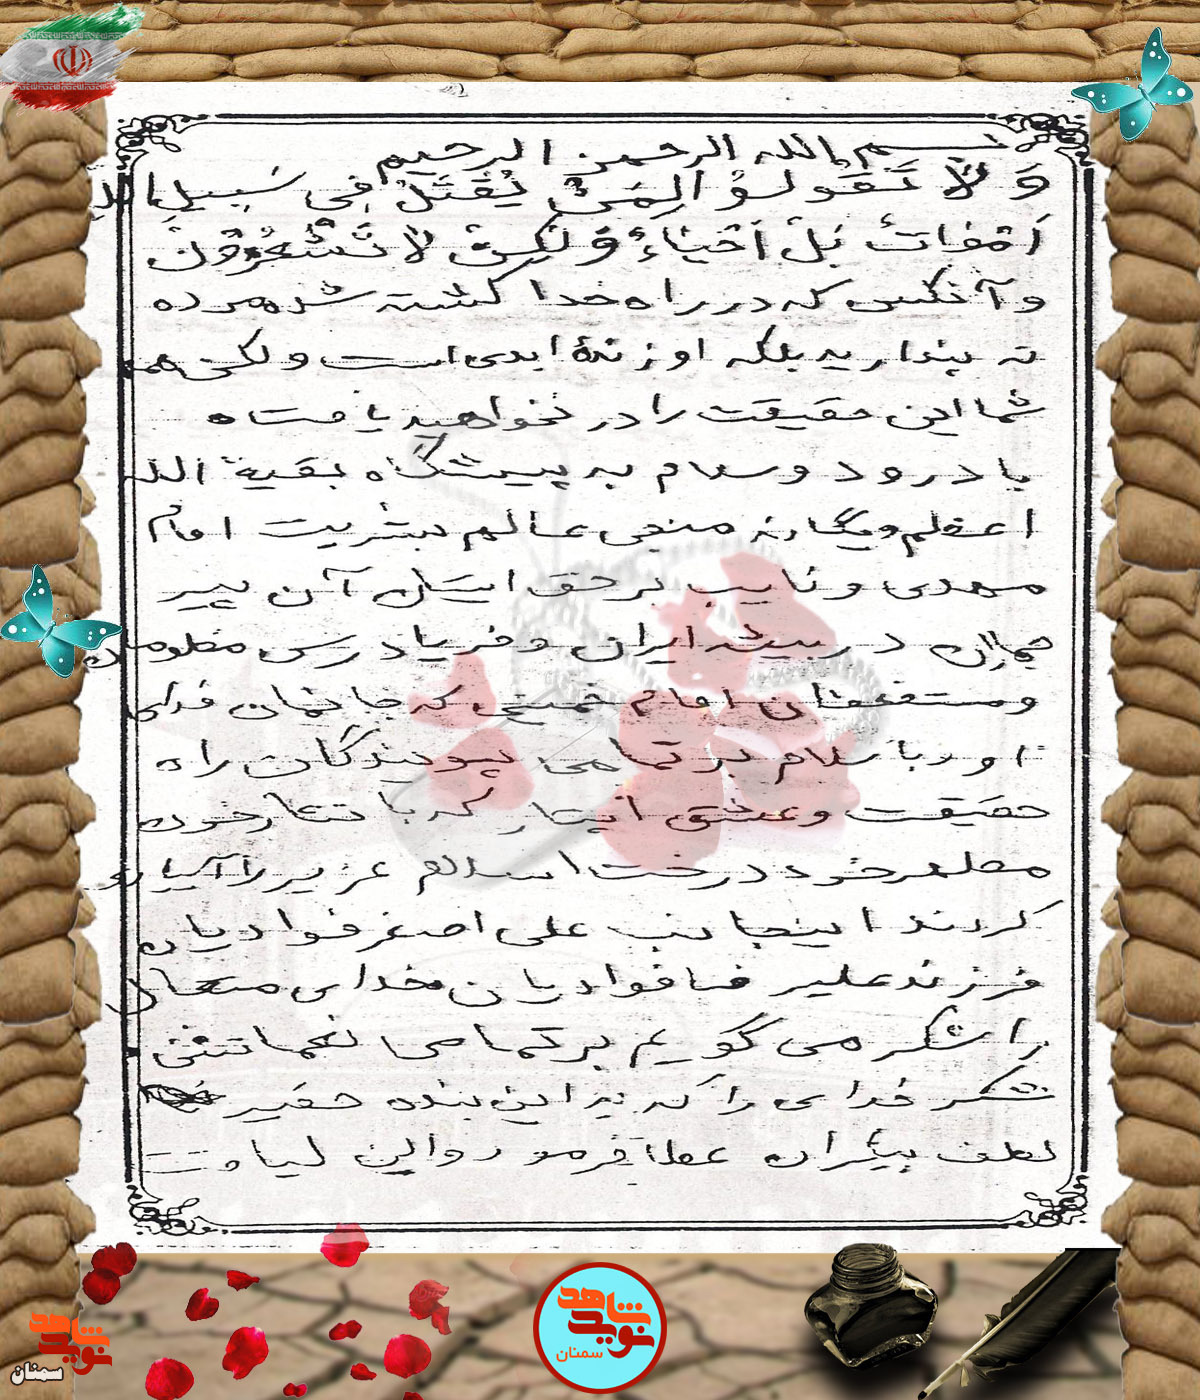 بسم الله الرحمن الرحیم
وَ لا تَقولوُ الِمَنْ یُقْتَلُ فِی سَبیلِ الله
اَمْواتْ بَلْ اَحْیاءُ وَ لکِنْ لا تَشْعُروُنَ
و آنکس که در راه خدا کشته شد مرده
نه پندارید بلکه او زندهٔ ابدی است ولکن همه
شما این حقیقت را در نخواهید یافت
با درود و سلام به پیشگاه بقیة الله
اعظم و یگانه منجی عالم بشریت امام
مهدی و نایب بر حق ایشان آن پیر
جماران در بیشه ایران و فریادرس مظلومان
و مستضعفان امام خمینی که جانمان فدای
او و با سلام بر تمامی پویندگان راه
حقیقت و عشق ایثار که با نثار خون
مطهر خود درخت اسلام عزیز را آبیاری
کردند اینجانب علی اصغر فوادیان
فرزند علیرضا فوادیان خدای متعال
را شکر می گویم بر تمامی نعماتش
شکر خدای را که بر این بنده حقیر
لطف بیکران عطا فرمود و این لیاقت
شاهد
نوید
سمنان
شاهد
نوید
سمنان